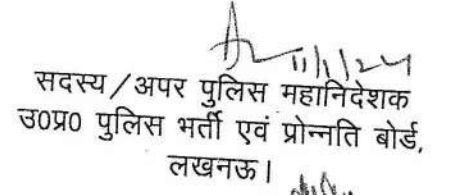 11/1/24
सदस्य/अपर पुलिस महानिदेशक
उ०प्र० पुलिस भर्ती एवं प्रोन्नति बोर्ड,
लखनऊ।